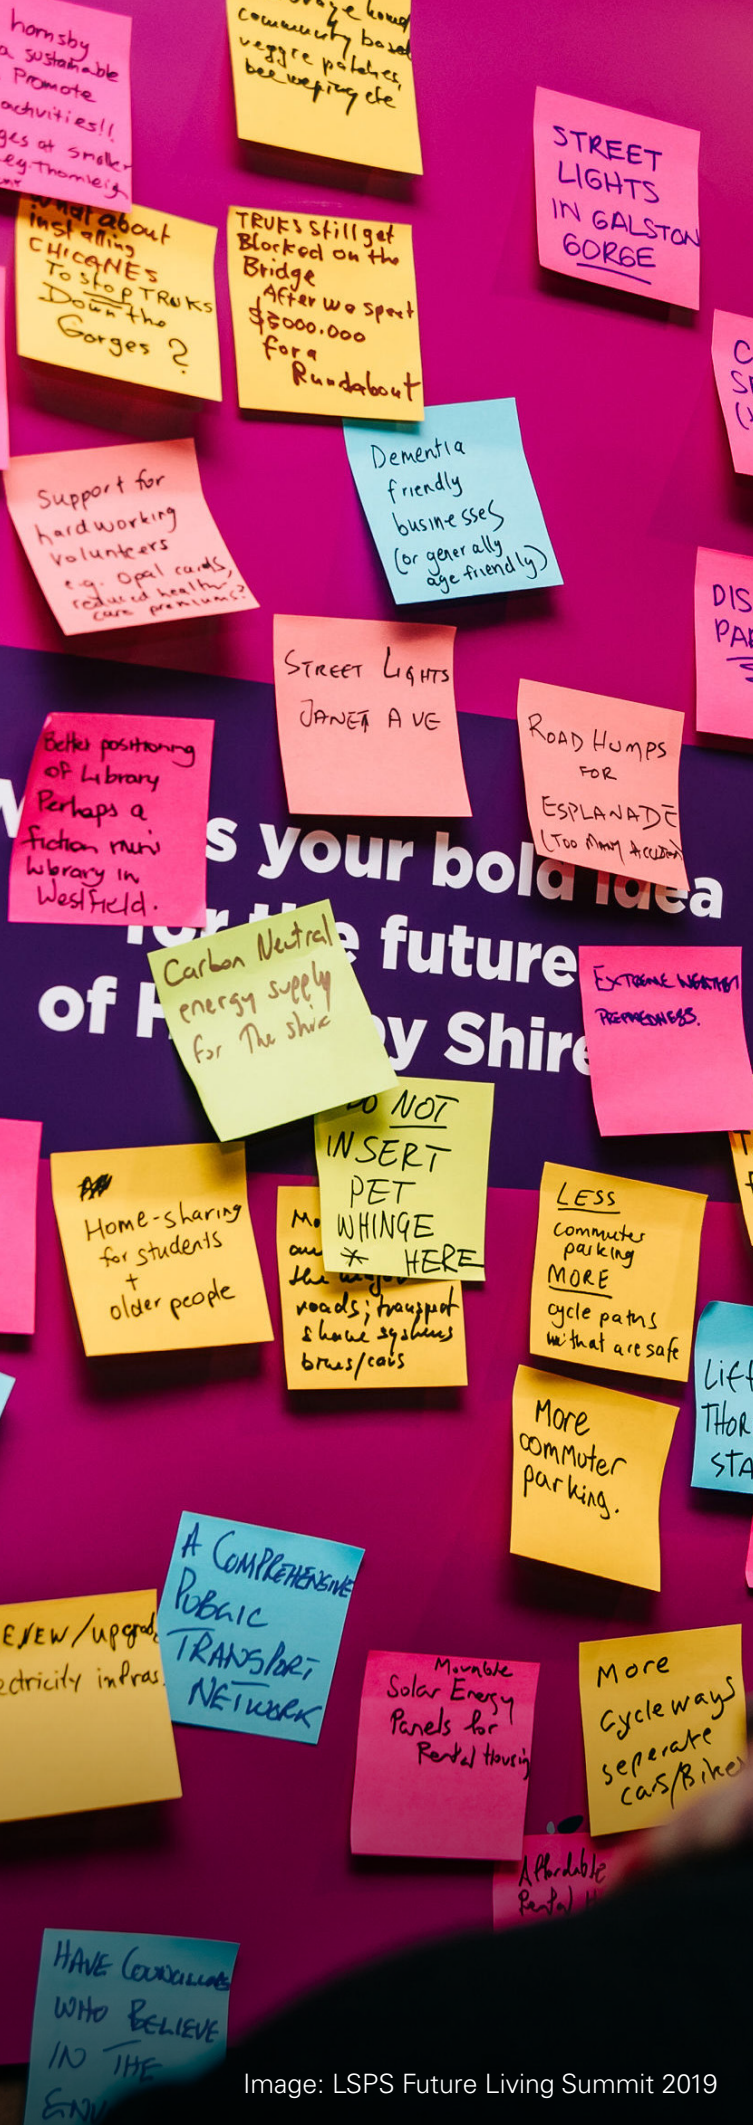 hornsby
a sustainable
Promote
activities!!
ges at smaller
eg. Thornleigh
community based
veggie patches,
bee weping etc
STREET
LIGHTS
IN GALSTON
GORGE
What about
installing
CHICANES
To stop TRUKS
Down the
Gorges ?
TRUKS Still get
Blocked on the
Bridge
After we spent
$5000.000
for a
Rundabout
Dementia
friendly
businesses
(or generally
age friendly)
Support for
hardworking
volunteers
e.g. Opal cards,
reduced health
care premiums?
DIS
PA
STREET LIGHTS
JANET AVE
ROAD HUMPS
FOR
ESPLANADE
(TOO MANY ACCIDEN
Better positioning
of Library
Perhaps a
fiction mini
library in
Westfield.
s your bold idea
for the future
of H by Shire
Carbon Neutral
energy supply
for The shire
EXTREME WEATHER
PREPAREDNESS.
DO NOT
INSERT
PET
WHINGE
* HERE
Home-sharing
for students
+
older people
the major
roads; transport
share systems
bikes/cars
LESS
commuter
parking
MORE
cycle paths
that are safe
Lift
THOR
STA
More
commuter
parking.
A COMPREHENSIVE
PUBLIC
TRANSPORT
NETWORK
ENEW/upgrad
ectricity infras.
Movable
Solar Energy
Panels for
Rental Housing
More
Cycleways
seperate
cars/Bike
Affordable
Rental H
HAVE COUNCILLORS
WHO BELIEVE
IN THE
ENV
Image: LSPS Future Living Summit 2019